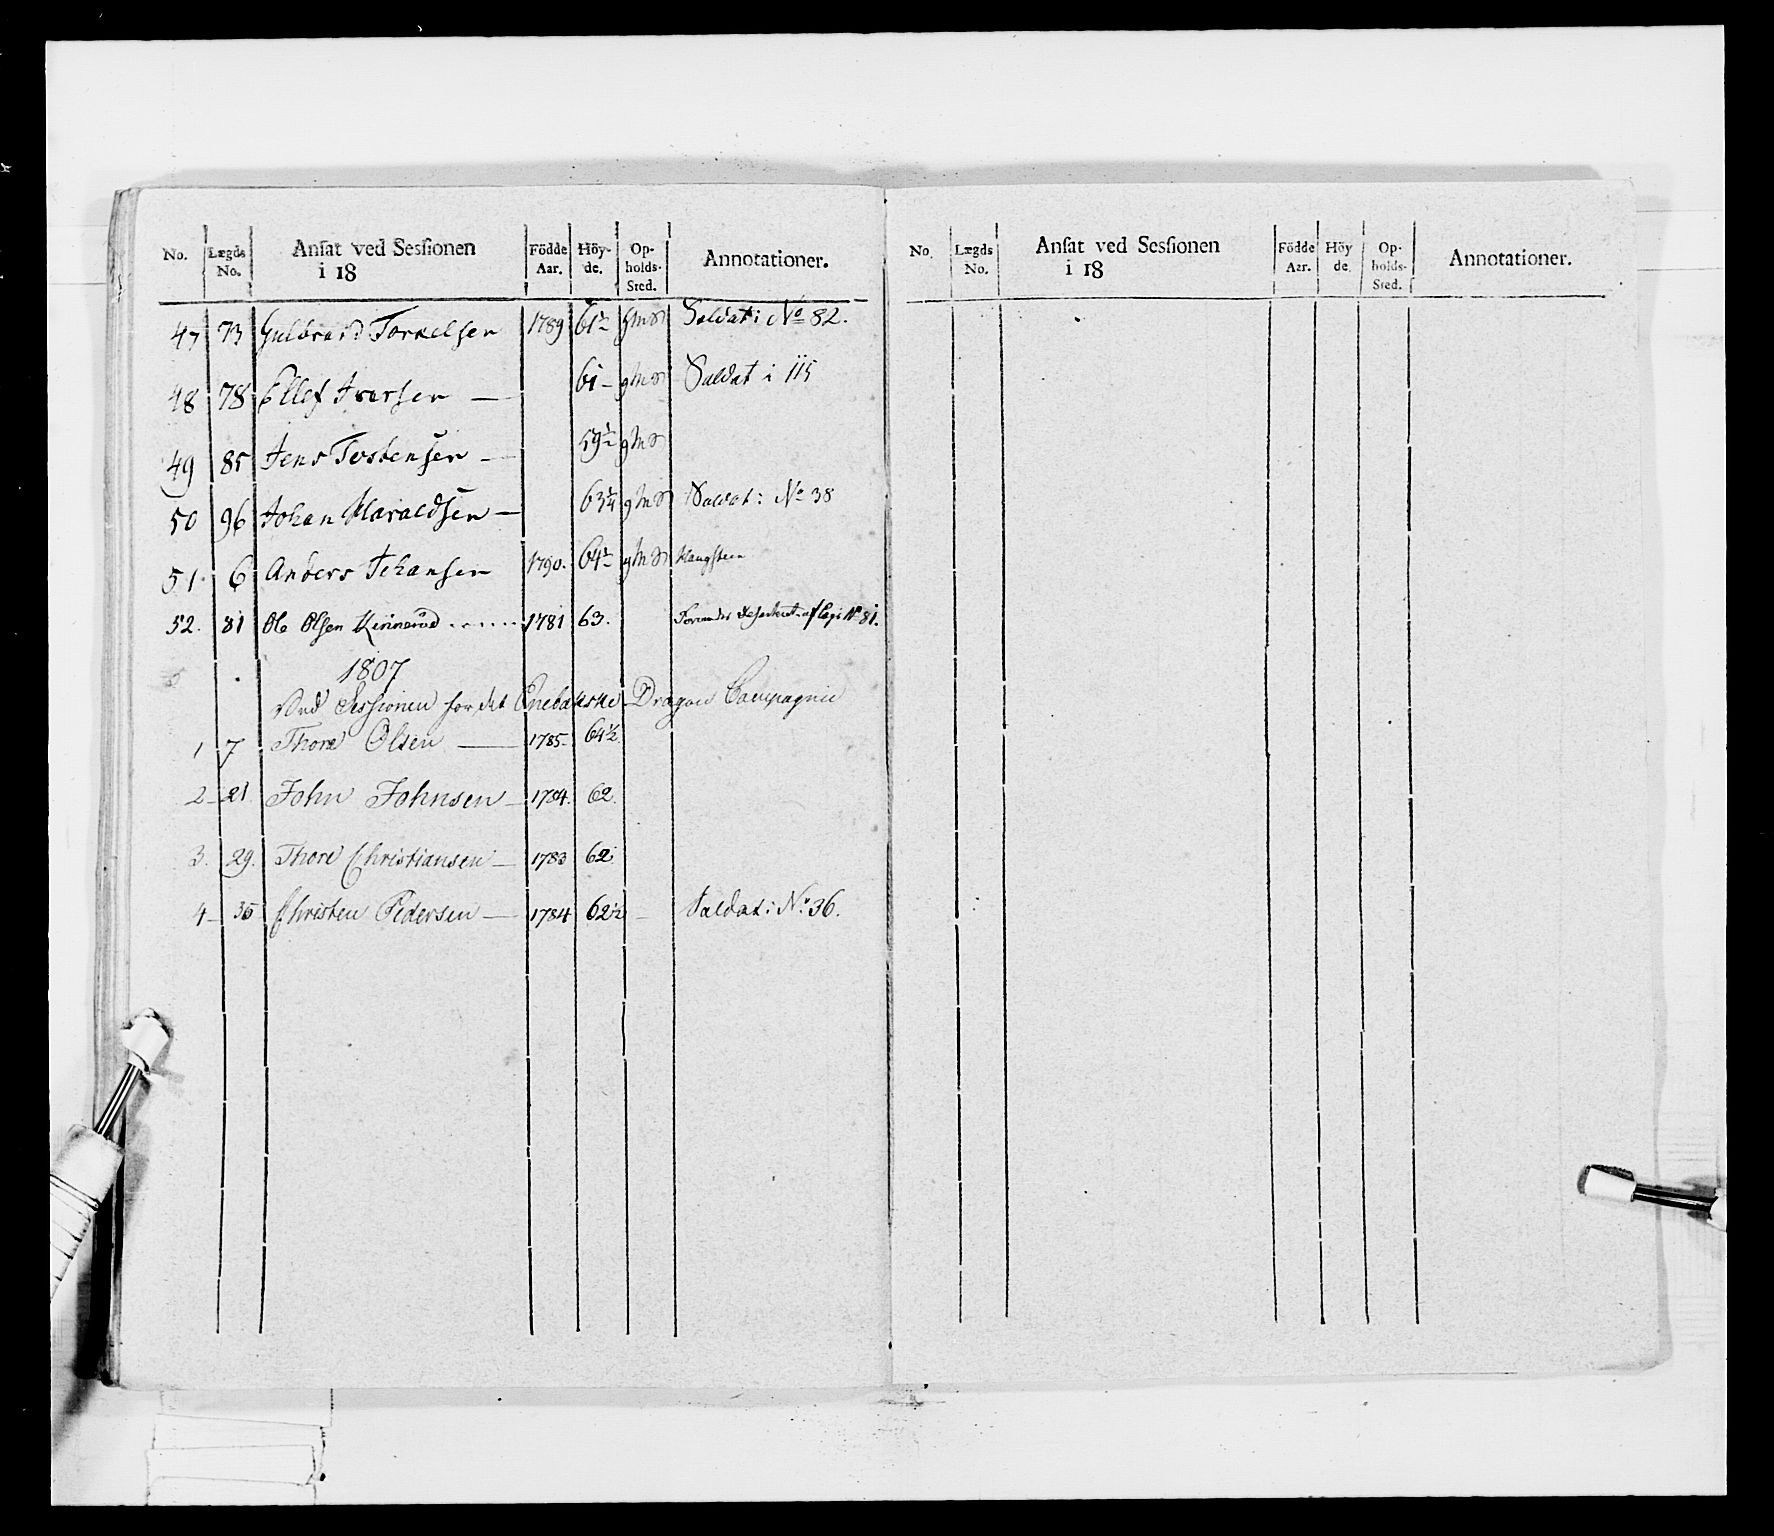 No. Lægds No. Ansat ved Sessionen i 18 Födde Aar. Höy-de. Op-holds-Sted. Annotationer.
47 73 Gulbrand Torkelsen 1789 61½ Soldat: No 82.
48 78 Ellef Iversen — 61 – Soldat i 115
49 85 Jens Tostensen — 59½
50 96 Johan Haraldsen — 63¼ Soldat: No 38
51. 6 Anders Johansen 1790. 64½ Haugsteen
52. 81 Ole Olsen Kinnerød 1781 63. No 81.
1807
Ved Sessionen for det Enebakske Dragon Compagnie
1 7 Thore Olsen — 1785– 64½
2– 21 John Johnsen – 1784. 62.
3. 29. Thore Christiansen — 1783 62
4– 35 Christen Pedersen — 1784 62½ – Soldat: No. 36.
No. Lægds No. Ansat ved Sessionen i 18 Födde Aar. Höy de. Op-holds-Sted. Annotationer.